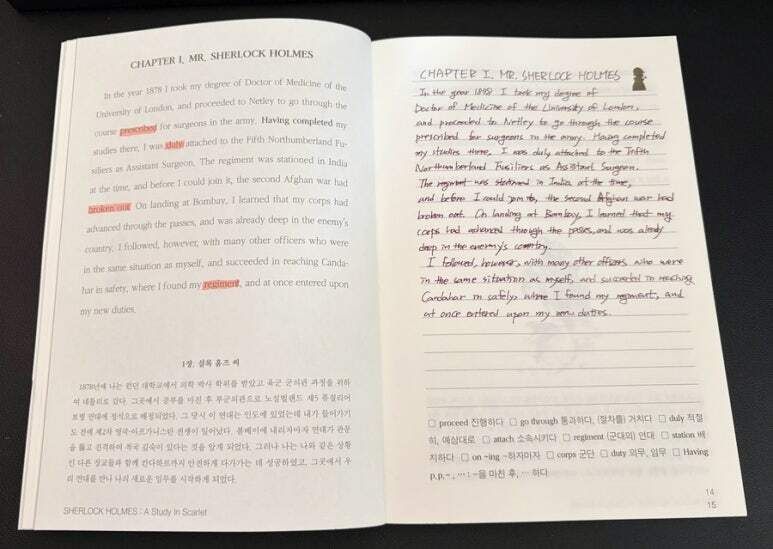 CHAPTER I. MR. SHERLOCK HOLMES
In the year 1878 I took my degree of Doctor of Medicine of the
University of London, and proceeded to Netley to go through the
course prescribed for surgeons in the army. Having completed my
studies there, I was duly attached to the Fifth Northumberland Fu-
siliers as Assistant Surgeon. The regiment was stationed in India
at the time, and before I could join it, the second Afghan war had
broken out. On landing at Bombay, I learned that my corps had
advanced through the passes, and was already deep in the enemy's
country. I followed, however, with many other officers who were
in the same situation as myself, and succeeded in reaching Canda-
har in safety, where I found my regiment, and at once entered upon
my new duties.
1장. 셜록 홈즈 씨
1878년에 나는 런던 대학교에서 의학 박사 학위를 받았고 육군 군의관 과정을 위하
여 네틀리로 갔다. 그곳에서 공부를 마친 후 부군의관으로 노섬벌랜드 제5 퓨질리어
연대에 정식으로 배정되었다. 그 당시 이 연대는 인도에 있었는데 내가 들어가기
도 전에 제2차 영국-아프가니스탄 전쟁이 일어났다. 봄베이에 내리자마자 연대가 관문
을 뚫고 진격하여 적국 깊숙이 있다는 것을 알게 되었다. 그러나 나는 나와 같은 상황
인 다른 장교들과 함께 칸다하르까지 안전하게 다가가는 데 성공하였고, 그곳에서 우
리 연대를 만나 나의 새로운 임무를 시작하게 되었다.
SHERLOCK HOLMES : A Study In Scarlet
CHAPTER I. MR. SHERLOCK HOLMES
In the year I took my degree of
Doctor of Medicine of the University of London,
and proceeded to Netley to go through the course
prescribed for surgeons in the army. Having completed
my studies there, I was duly attached to the
Northumberland Fusiliers as Assistant Surgeon.
The regiment was stationed in India at the time,
and before I could join it, the second Afghan war had
broken out. On landing at Bombay, I learned that my
corps had advanced through the passes, and was already
deep in the enemy's country.
I followed, however, with many other officers who were
in the same situation as myself, and succeeded in reaching
Candahar in safety, where I found my regiment, and
at once entered upon my new duties.
□ proceed 진행하다 □ go through 통과하다, (절차를) 거치다 □ duly 적절
히, 예상대로 □ attach 소속시키다 □ regiment (군대의) 연대 □ station 배
치하다 □ on ~ing ~하자마자 □ corps 군단 □ duty 의무, 임무 □ Having
p.p.~, … : ~을 마친 후, … 하다
14
15